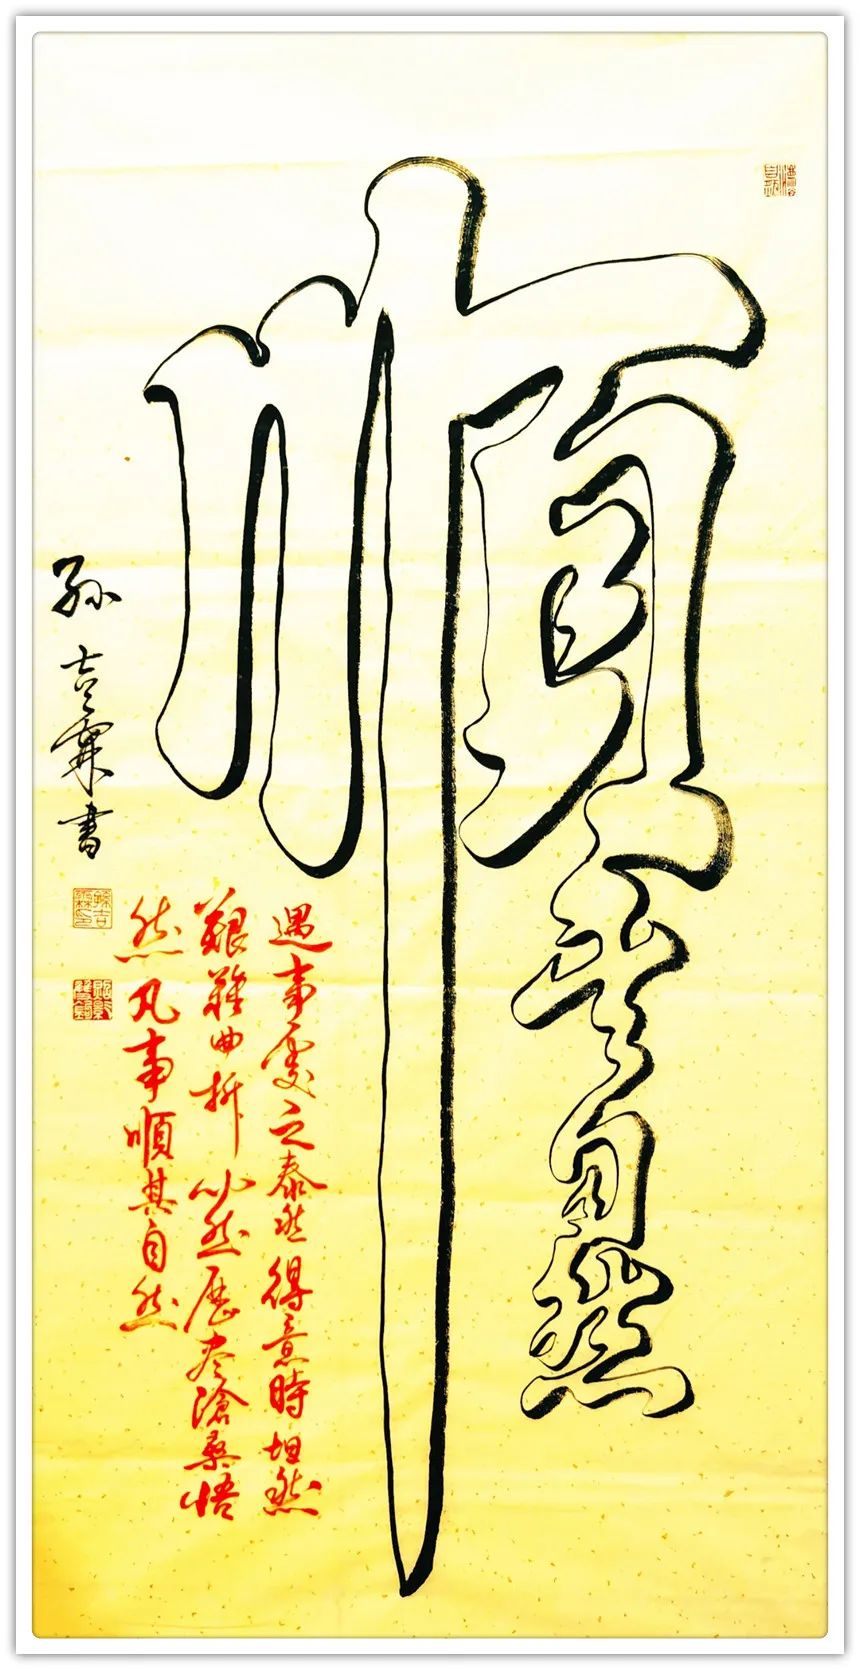 順其自然
遇事處之泰然得意時坦然
艱難曲折必然歷盡滄桑悟
然凡事順其自然
孫吉霖書